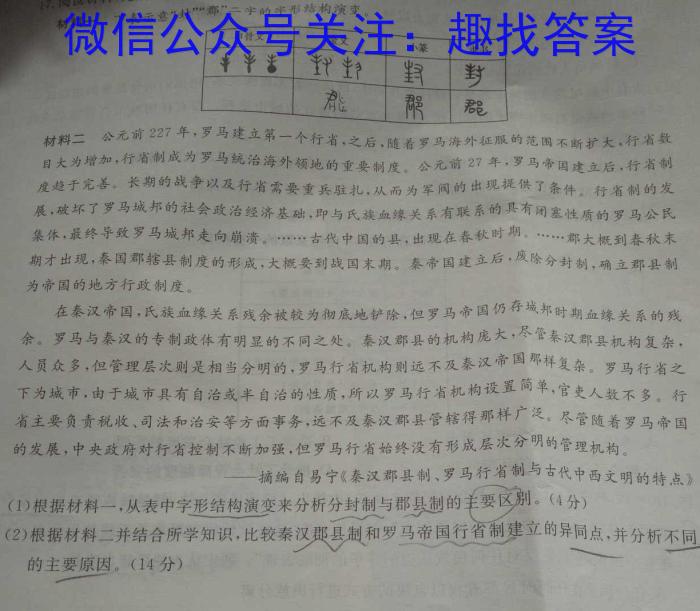 微信公众号关注：趣找答案
材料二 公元前227年，罗马建立第一个行省，之后，随着罗马海外征服的范围不断扩大，行省数
目大为增加，行省制成为罗马统治海外领地的重要制度。公元前27年，罗马帝国建立后，行省制
度趋于完善。长期的战争以及行省需要重兵驻扎，从而为军阀的出现提供了条件。行省制的发
展，破坏了罗马城邦的社会政治经济基础，即与氏族血缘关系有联系的具有闭塞性质的罗马公民
集体，最终导致罗马城邦走向崩溃。……古代中国的县，出现在春秋时期。……郡大概到春秋末
期才出现，秦国郡辖县制度的形成，大概要到战国末期。秦帝国建立后，废除分封制，确立郡县制
为帝国的地方行政制度。
在秦汉帝国，氏族血缘关系残余被较为彻底地铲除，但罗马帝国仍存城邦时期血缘关系的残
余。罗马与秦汉的专制政体有明显的不同之处。秦汉郡县的机构庞大，尽管秦汉郡县机构复杂，
人员众多，但管理层次则是相当分明的，罗马行省机构则远不及秦汉帝国那样复杂。罗马行省之
下为城市，由于城市具有自治或半自治的性质，所以罗马行省机构设置简单，官吏人数不多。行
省主要负责税收、司法和治安等方面事务，远不及秦汉郡县管辖得那样广泛。尽管随着罗马帝国
的发展，中央政府对行省控制不断加强，但罗马行省始终没有形成层次分明的管理机构。
——摘编自易宁《秦汉郡县制、罗马行省制与古代中西文明的特点》
(1)根据材料一，从表中字形结构演变来分析分封制与郡县制的主要区别。(4分)
(2)根据材料二并结合所学知识，比较秦汉郡县制和罗马帝国行省制建立的异同点，并分析不同
的主要原因。(14分)